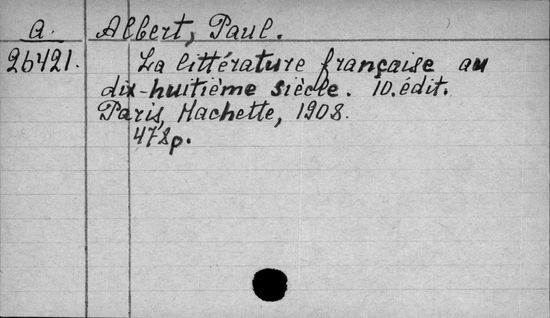 a. Albert, Paul.
26421. La littérature française au
dix-huitième siècle. 10. édit.
Paris, Hachette, 1908.
478p.